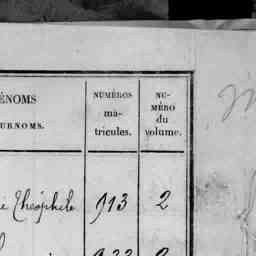 ÉNOMS
URNOMS.
NUMÉROS
ma-
tricules.
NU-
MÉRO
du
volume.
Théophile 913 2